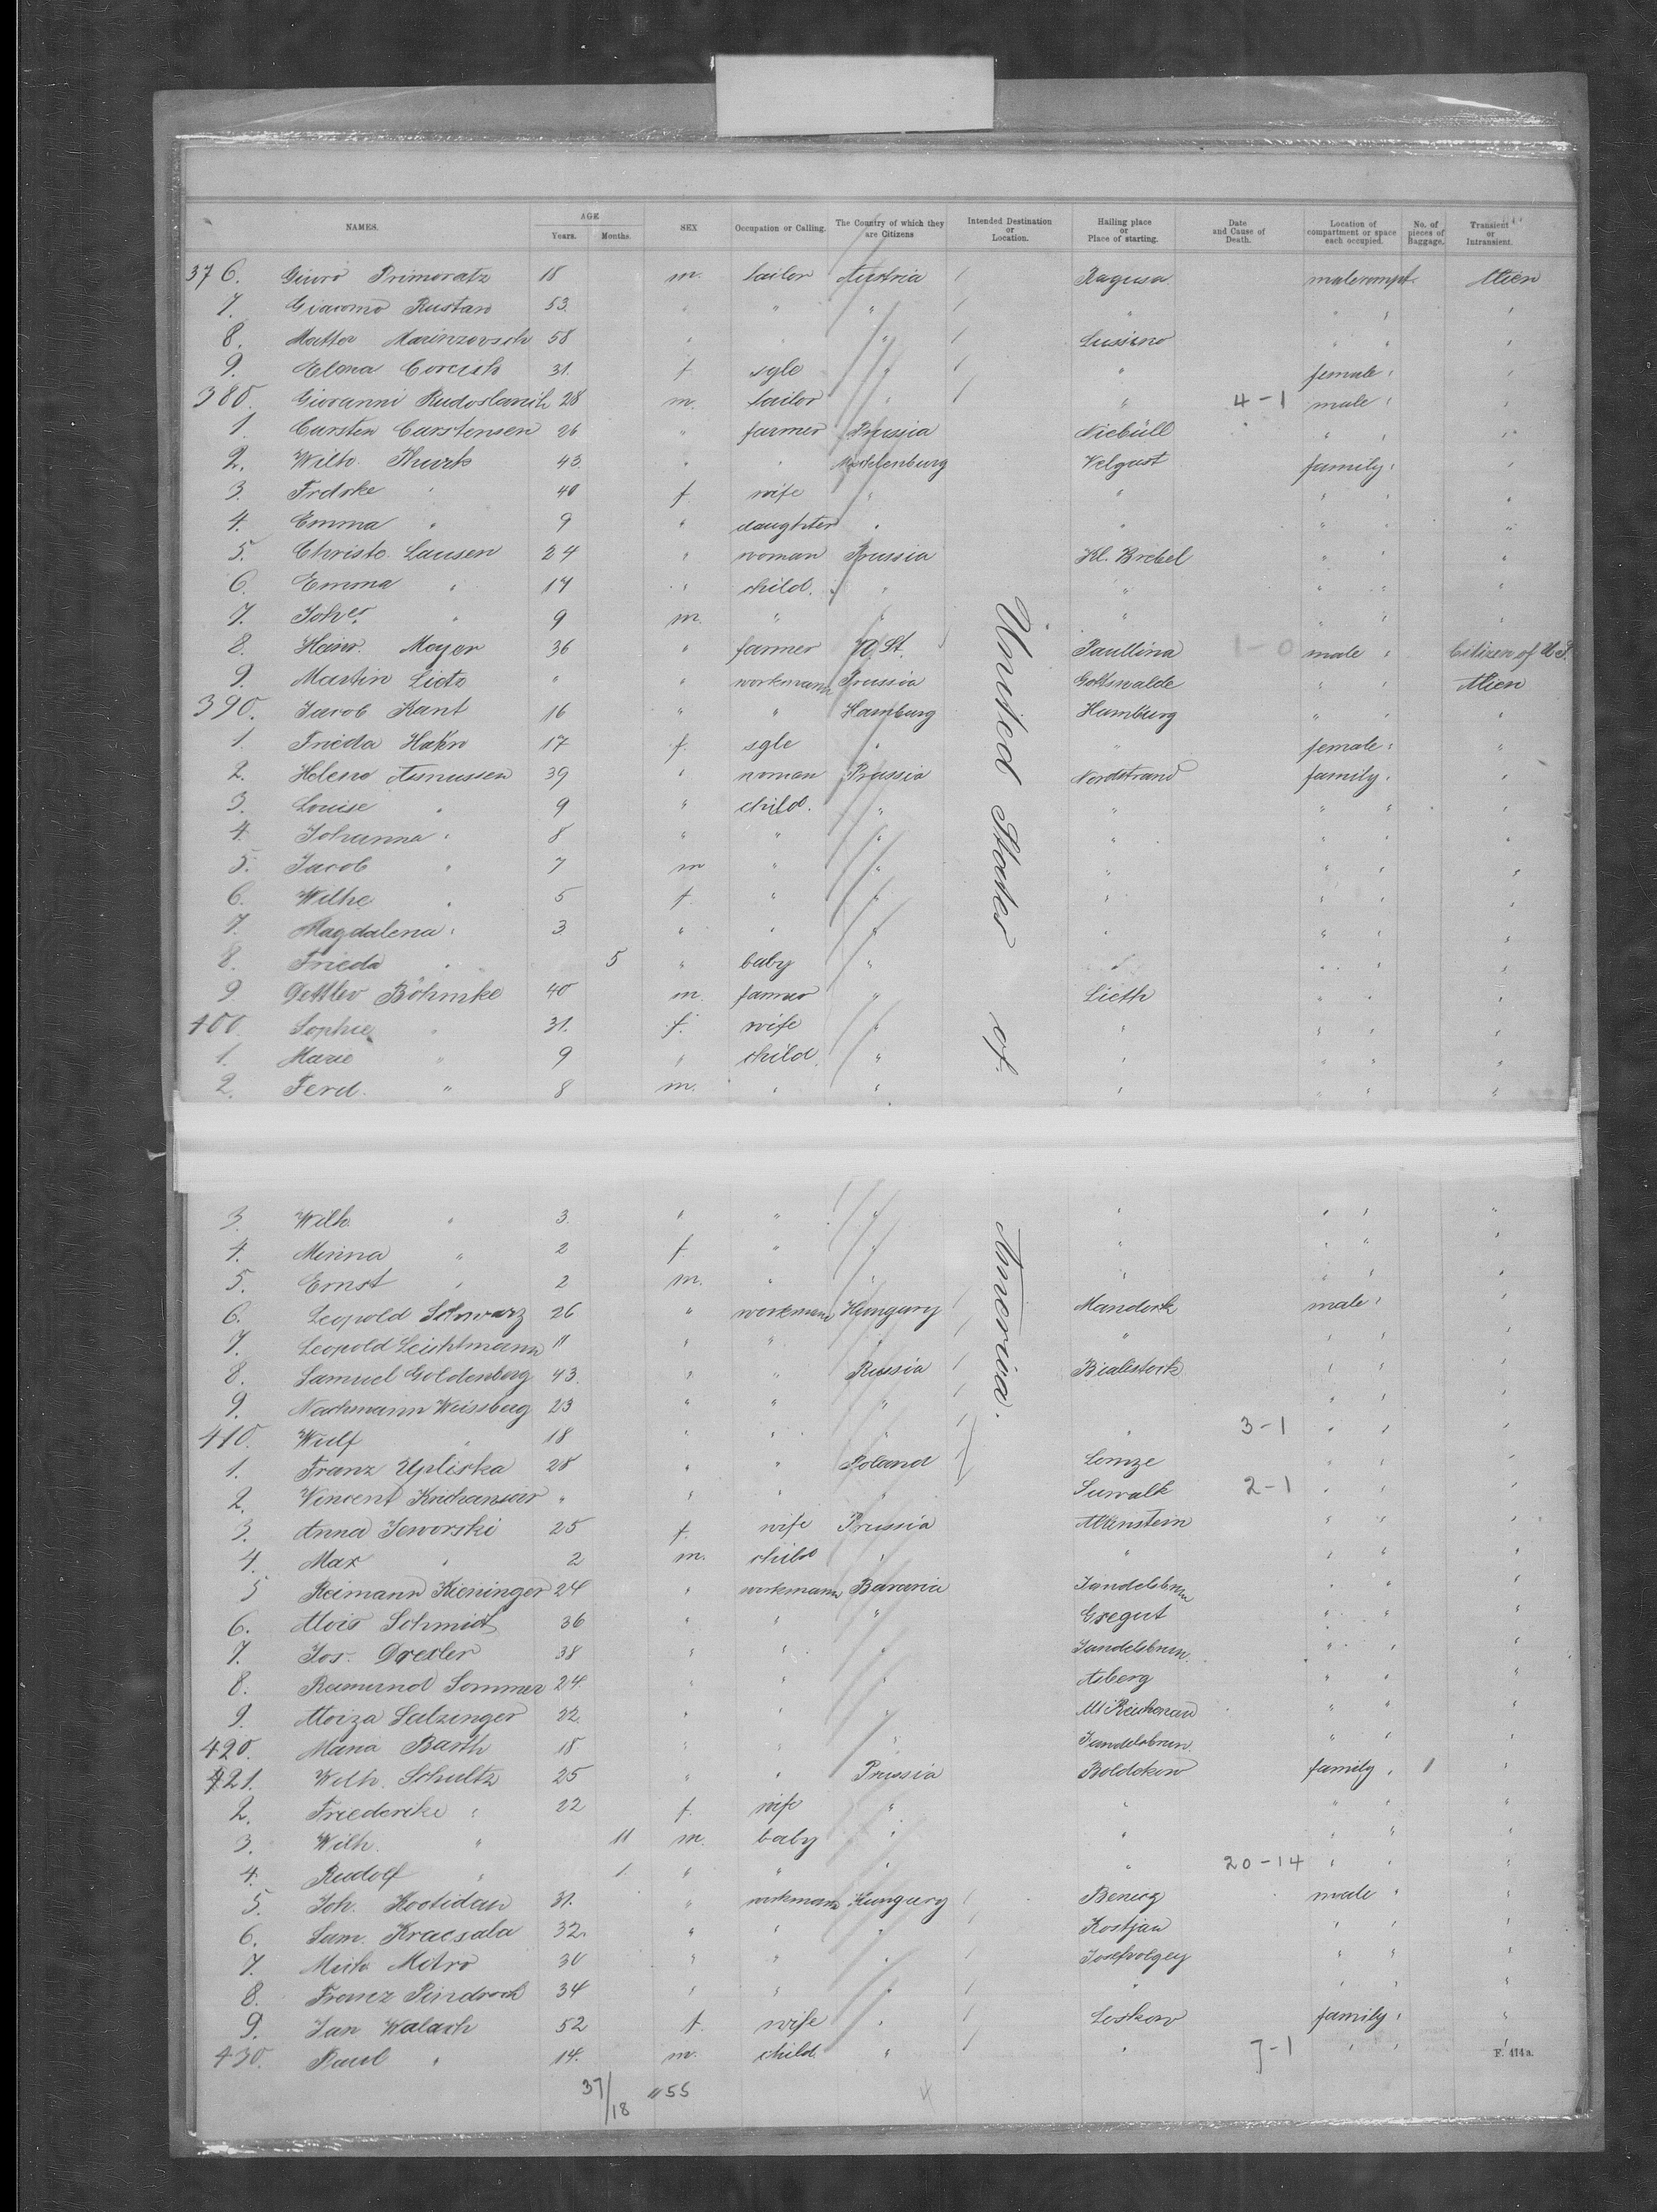 NAMES. AGE Years. Months. SEX Occupation or Calling. The Country of which they are Citizens Intended Destination or Location. Hailing place or Place of starting. Date and Cause of Death. Location of compartment or space each occupied. No. of pieces of Baggage. Transient or Intransient.
376. Giuro Primoratz 18 m. tailor Austria / Ragusa malecompt. Alien
7. Giacomo Rustan 53. " " " / " " " "
8. Matteo Marinzovsch 58 " " " / Lussino " " "
9. Elena Corcish 31. f. sgle " / " female " "
380. Giovanni Rudoslanich 28 m. tailor " / " 4-1 male " "
1. Carsten Carstensen 26 " farmer Prussia Niebüll " " "
2. Wilh. Thurk 43. " " Mecklenburg Velgast family " "
3. Frdrke " 40 f. wife " " " " "
4. Emma " 9 " daughter " " " " "
5. Christe. Lausen 24 " woman Prussia Kl. Brebel " " "
6. Emma " 14 " child. " " " " "
7. Johes. " 9 m. " " " " " "
8. Heinr. Meyer 36 " farmer U. St. Paullina 1-0 male " Citizen of U.S.
9. Martin Lietz " " workmann Prussia Gottswalde " " Alien
390. Jacob Kant 16 " " Hamburg Hamburg " " "
1. Frieda Hahn 17 f. sgle " " female " "
2. Helene Asmussen 39 " woman Prussia Nordstrand family " "
3. Louise " 9 " child. " " " " "
4. Johanna " 8 " " " " " " "
5. Jacob " 7 m " " " " " "
6. Wilhe " 5 f. " " " " " "
7. Magdalena " 3 " " " " " " "
8. Frieda " 5 " baby " " " " "
9. Dettlev Böhmke 40 m. farmer " Lieth " " "
400. Sophie " 31. f. wife " " " " "
1. Marie " 9 " child " " " " "
2. Ferd. " 8 m. " " " " " "
United States of
3. Wilh. " 3. " " " " " " "
4. Minna " 2 f. " " " " " "
5. Ernst " 2 m. " " " " " "
6. Leopold Schwarz 26 " workmann Hungary / Mandock male " "
7. Leopold Leichtmann 11 " " " / " " " "
8. Samuel Goldenberg 43. " " Russia / Bialistock " " "
9. Nachmann Weissberg 23 " " " / " " "
410. Wulf " 18 " " " / " 3-1 " " "
1. Franz Upliska 28 " " Poland / Lomze " " "
2. Vincent " " " " Suwalk 2-1 " " "
3. Anna Jeworski 25 f. wife Prussia Allenstein " " "
4. Max " 2 m. child " " " " "
5 Reimann Kieninger 24 " workmann Bavaria Jandelsbrun " " "
6. Alois Schmidt 36 " " " Gsegut " " "
7. Jos. Drexler 38 " " " Jandelsbrun. " " "
8. Reimund Sommer 24 " " " Asberg " " "
9. Aloiza Salzinger 22. " " " Alt Reichenau " " "
420. Maria Barth 18 " " " Jandelsbrun " " "
421. Wilh. Schultz 25 " " Prussia Boldekow family " 1 "
2. Friederike " 22 f. wife " " " " "
3. Wilh. " 11 m. baby " " " " "
4. Rudolf " 1. " " " " 20-14 " " "
5. Joh. Kostidan 31. " workmann Hungary / Benicz male " "
6. Sam. Kracsala 32. " " " / Kostjan " " "
7. Mich. Mitro 30 " " " / Josefvolgey " " "
8. Franz Pindroch 34 " " " / " " " "
9. Jan Walach 52 f. wife " / Leskow family " "
430. Paul " 14. m. child. " / " 7-1 " " "
America.
F. 414a.
37/18 " 55